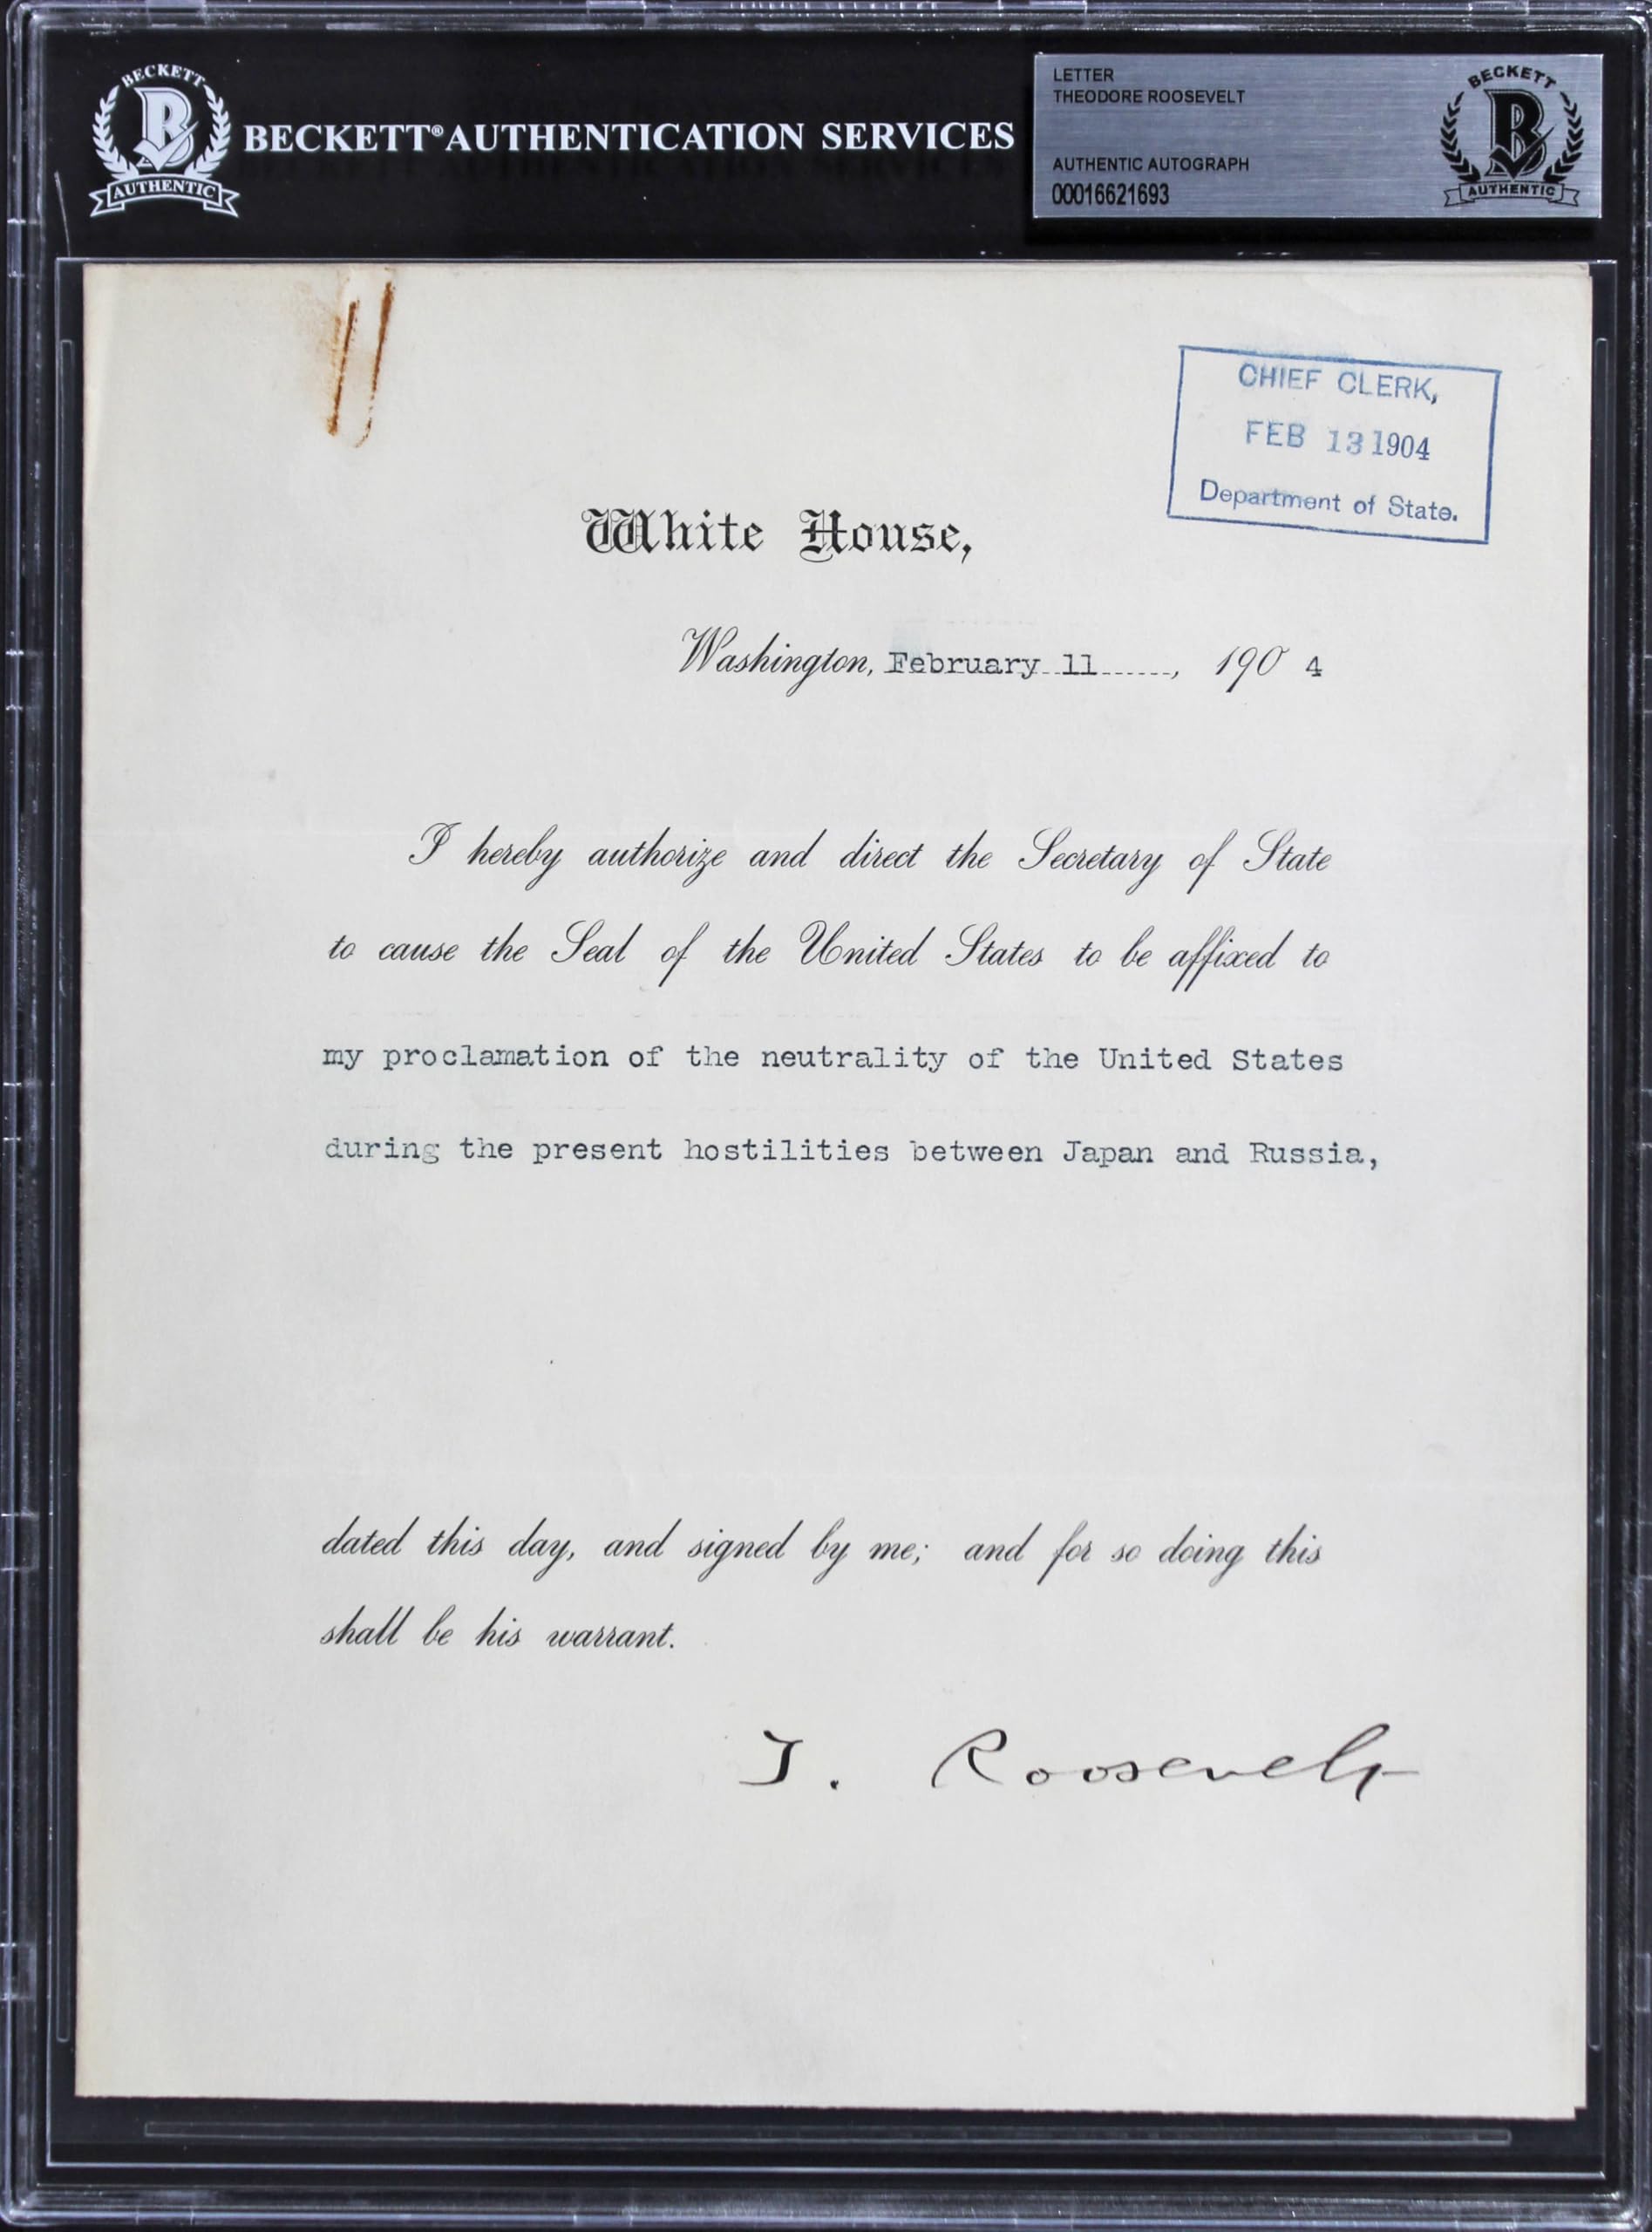 BECKETT
B
AUTHENTIC
BECKETT® AUTHENTICATION SERVICES
LETTER
THEODORE ROOSEVELT
AUTHENTIC AUTOGRAPH
00016621693
BECKETT
B
AUTHENTIC
CHIEF CLERK,
FEB 13 1904
Department of State.
White House,
Washington, February 11, 1904
I hereby authorize and direct the Secretary of State
to cause the Seal of the United States to be affixed to
my proclamation of the neutrality of the United States
during the present hostilities between Japan and Russia,
dated this day, and signed by me; and for so doing this
shall be his warrant.
T. Roosevelt